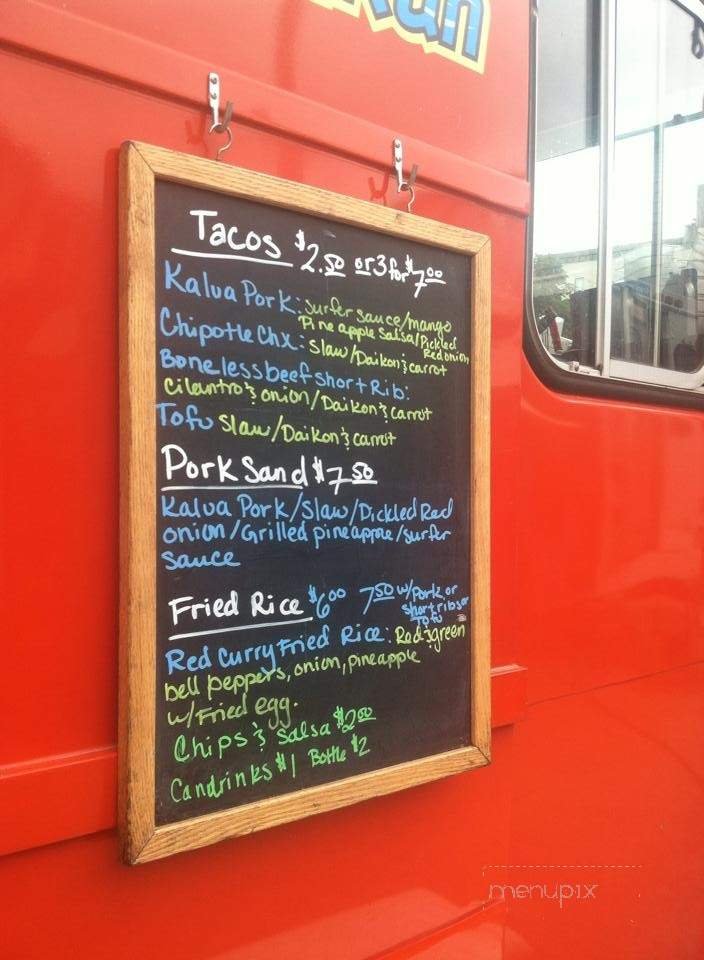 Tacos $2.50 or 3 for $7.00
Kalua Pork: surfer sauce/mango
Pineapple Salsa/Pickled
Red onion
Chipotle Chx: Slaw/Daikon & carrot
Boneless beef short Rib:
cilantro & onion/Daikon & carrot
Tofu Slaw/Daikon & carrot
Pork Sand $7.50
Kalua Pork/Slaw/Pickled Red
onion/Grilled pineapple/surfer
sauce
Fried Rice $6.00 7.50 w/Pork or
short ribs or
Tofu
Red Curry Fried Rice: Red & green
bell peppers, onion, pineapple
w/Fried egg.
Chips & Salsa $2.00
Can drinks $1 Bottle $2
menupix